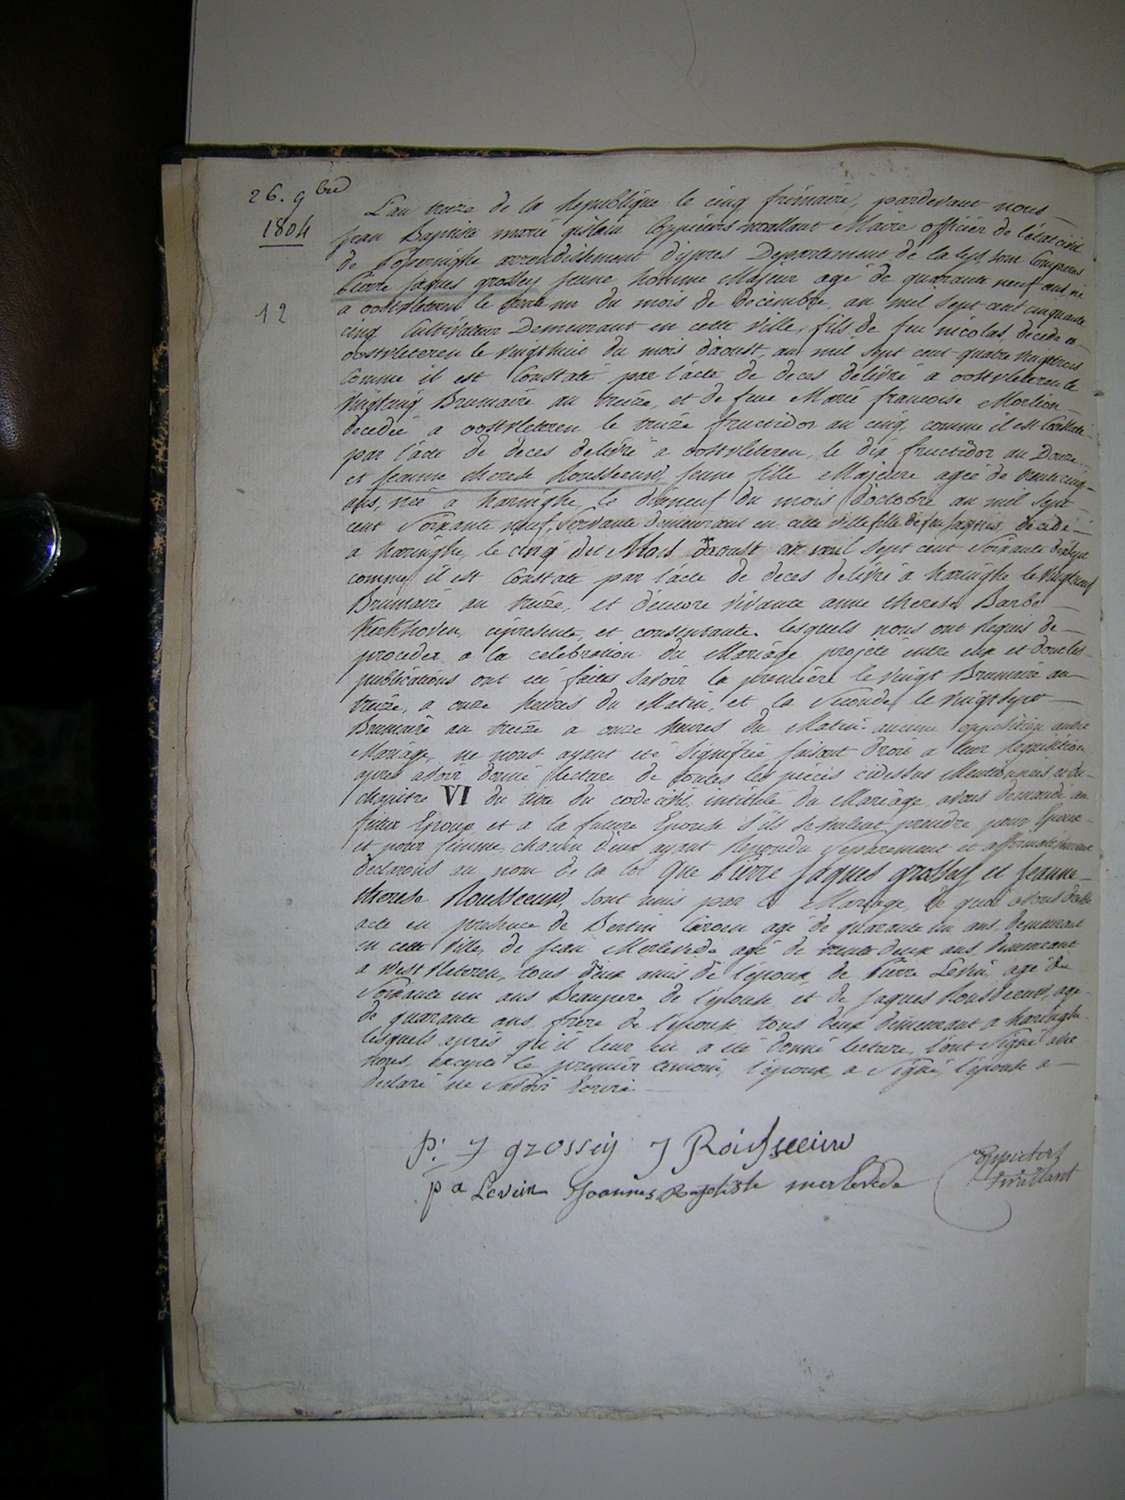 26. 9bre
1804
12
L'an treize de la Republique le cinq frimaire, pardevant nous
jean Baptiste marie gislain Maire officier de l'état civil
de Poperinghe arrondissement d'ypres Departement de la Lys sont comparus
Pierre jaques grossey jeune homme Majeur agé de quarante neuf ans, né
a oostvleteren le trente un du mois de Decembre, an mil sept cent cinquante
cinq Cultivateur Demeurant en cette ville, fils de feu nicolas, décédé a
oostvleteren le vingthuit du mois d'aoust, an mil sept cent quatre vingt
comme il est Constaté par l'acte de deces délivré a oostvleteren le
vingtcinq Brumaire an treize, et de feue Marie francoise Morlion
decedée a oostvleteren le treize fructidor an cinq, comme il est Constaté
par l'acte de deces delivré a oostvleteren, le dix fructidor an Douze
et jeanne therese Rousseeuw, jeune fille Majeure agée de trente cinq
ans, née a haringhe le dixneuf du mois d'octobre an mil sept
cent Soixante neuf, Servante demeurant en cette ville fille de feu jaques, decedé
a haringhe, le cinq du Mois d'aoust an mil sept cent Soixante
comme il est Constaté par l'acte de deces delivré a haringhe le
Brumaire an treize, et d'encore vivante anne therese Barbe
Kerkhoven, ci présente, et consentante. lesquels nous ont requis de
proceder a la celebration du Mariage projeté entre eux et dont les
publications ont été faites Savoir la premiere le vingt Brumaire an
treize, a onze heures du Matin, et la Seconde, le vingtsept
Brumaire an treize a onze heures du Matin aucune opposition audit
Mariage, ne nous ayant été signifiée faisant droit a leur requisition
apres avoir donné lecture de toutes les pièces cidessus Mentionnées et du
chapitre VI du titre du code civil, intitulé du Mariage, avons demandé au
futur Epoux et a la future Epouse s'ils se veulent prendre pour
et pour femme, chacun d'eux ayant repondu separement et affirmativement
declarons au nom de la loi que Pierre jaques grossey et jeanne
therese Rousseeuw, sont unis par le Mariage, de quoi avons dressé
acte en presence de Bertin agé de quarante un ans, demeurant
en cette ville, de jean Merlevede agé de trente deux ans demeurant
a westvleteren, tous deux amis de l'époux, de Pierre Levin, agé de
Soixante un ans Beaupere de l'épouse et de jaques Rousseeuw, agé
de quarante ans, frère de l'épouse tous deux demeurant a haringhe
lesquels après qu'il leur en a été donné lecture, l'ont Signé avec
nous, excepté le premier temoin, l'époux, a Signé, l'épouse a
declaré ne Savoir Ecrire.
p: J grossey J Rousseeuw
p a Levein Joannes Baptiste merlevede